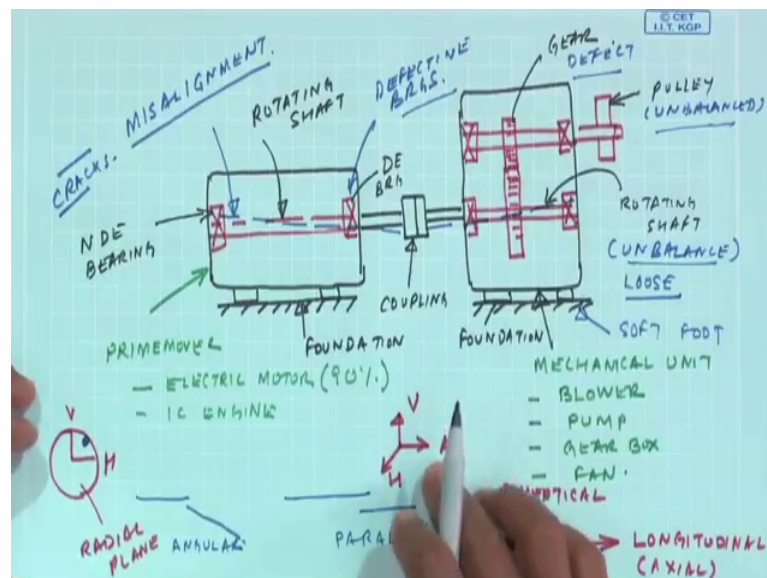 © CET
I.I.T. KGP
CRACKS.
MISALIGNMENT.
ROTATING
SHAFT
DEFECTINE
BRGS.
GEAR
DEFECT
PULLEY
(UNBALANCED)
NDE
BEARING
DE
BRG
COUPLING
ROTATING
SHAFT
(UNBALANCE)
LOOSE
SOFT FOOT
FOUNDATION
FOUNDATION
PRIMEMOVER
- ELECTRIC MOTOR (90%)
- IC ENGINE
MECHANICAL UNIT
- BLOWER
- PUMP
- GEAR BOX
- FAN.
V
H
RADIAL
PLANE
ANGULAR
V
H
LONGITUDINAL
(AXIAL)